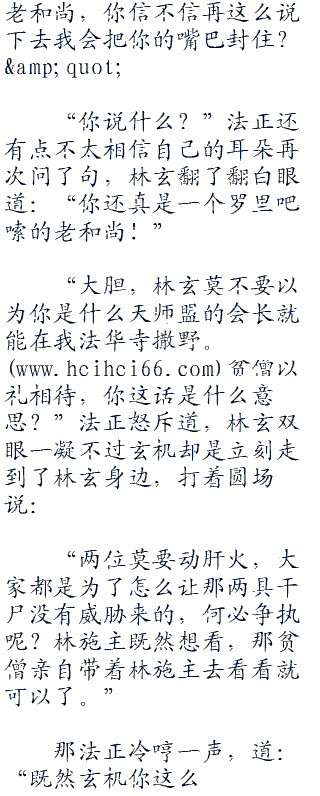 老和尚，你信不信再这么说
下去我会把你的嘴巴封住？
&amp;quot;
“你说什么？”法正还
有点不太相信自己的耳朵再
次问了句，林玄翻了翻白眼
道：“你还真是一个罗里吧
嗦的老和尚！”
“大胆，林玄莫不要以
为你是什么天师盟的会长就
能在我法华寺撒野。
(www.hcihci66.com)贫僧以
礼相待，你这话是什么意
思？”法正怒斥道，林玄双
眼一凝不过玄机却是立刻走
到了林玄身边，打着圆场
说：
“两位莫要动肝火，大
家都是为了怎么让那两具干
尸没有威胁来的，何必争执
呢？林施主既然想看，那贫
僧亲自带着林施主去看看就
可以了。”
那法正冷哼一声，道：
“既然玄机你这么